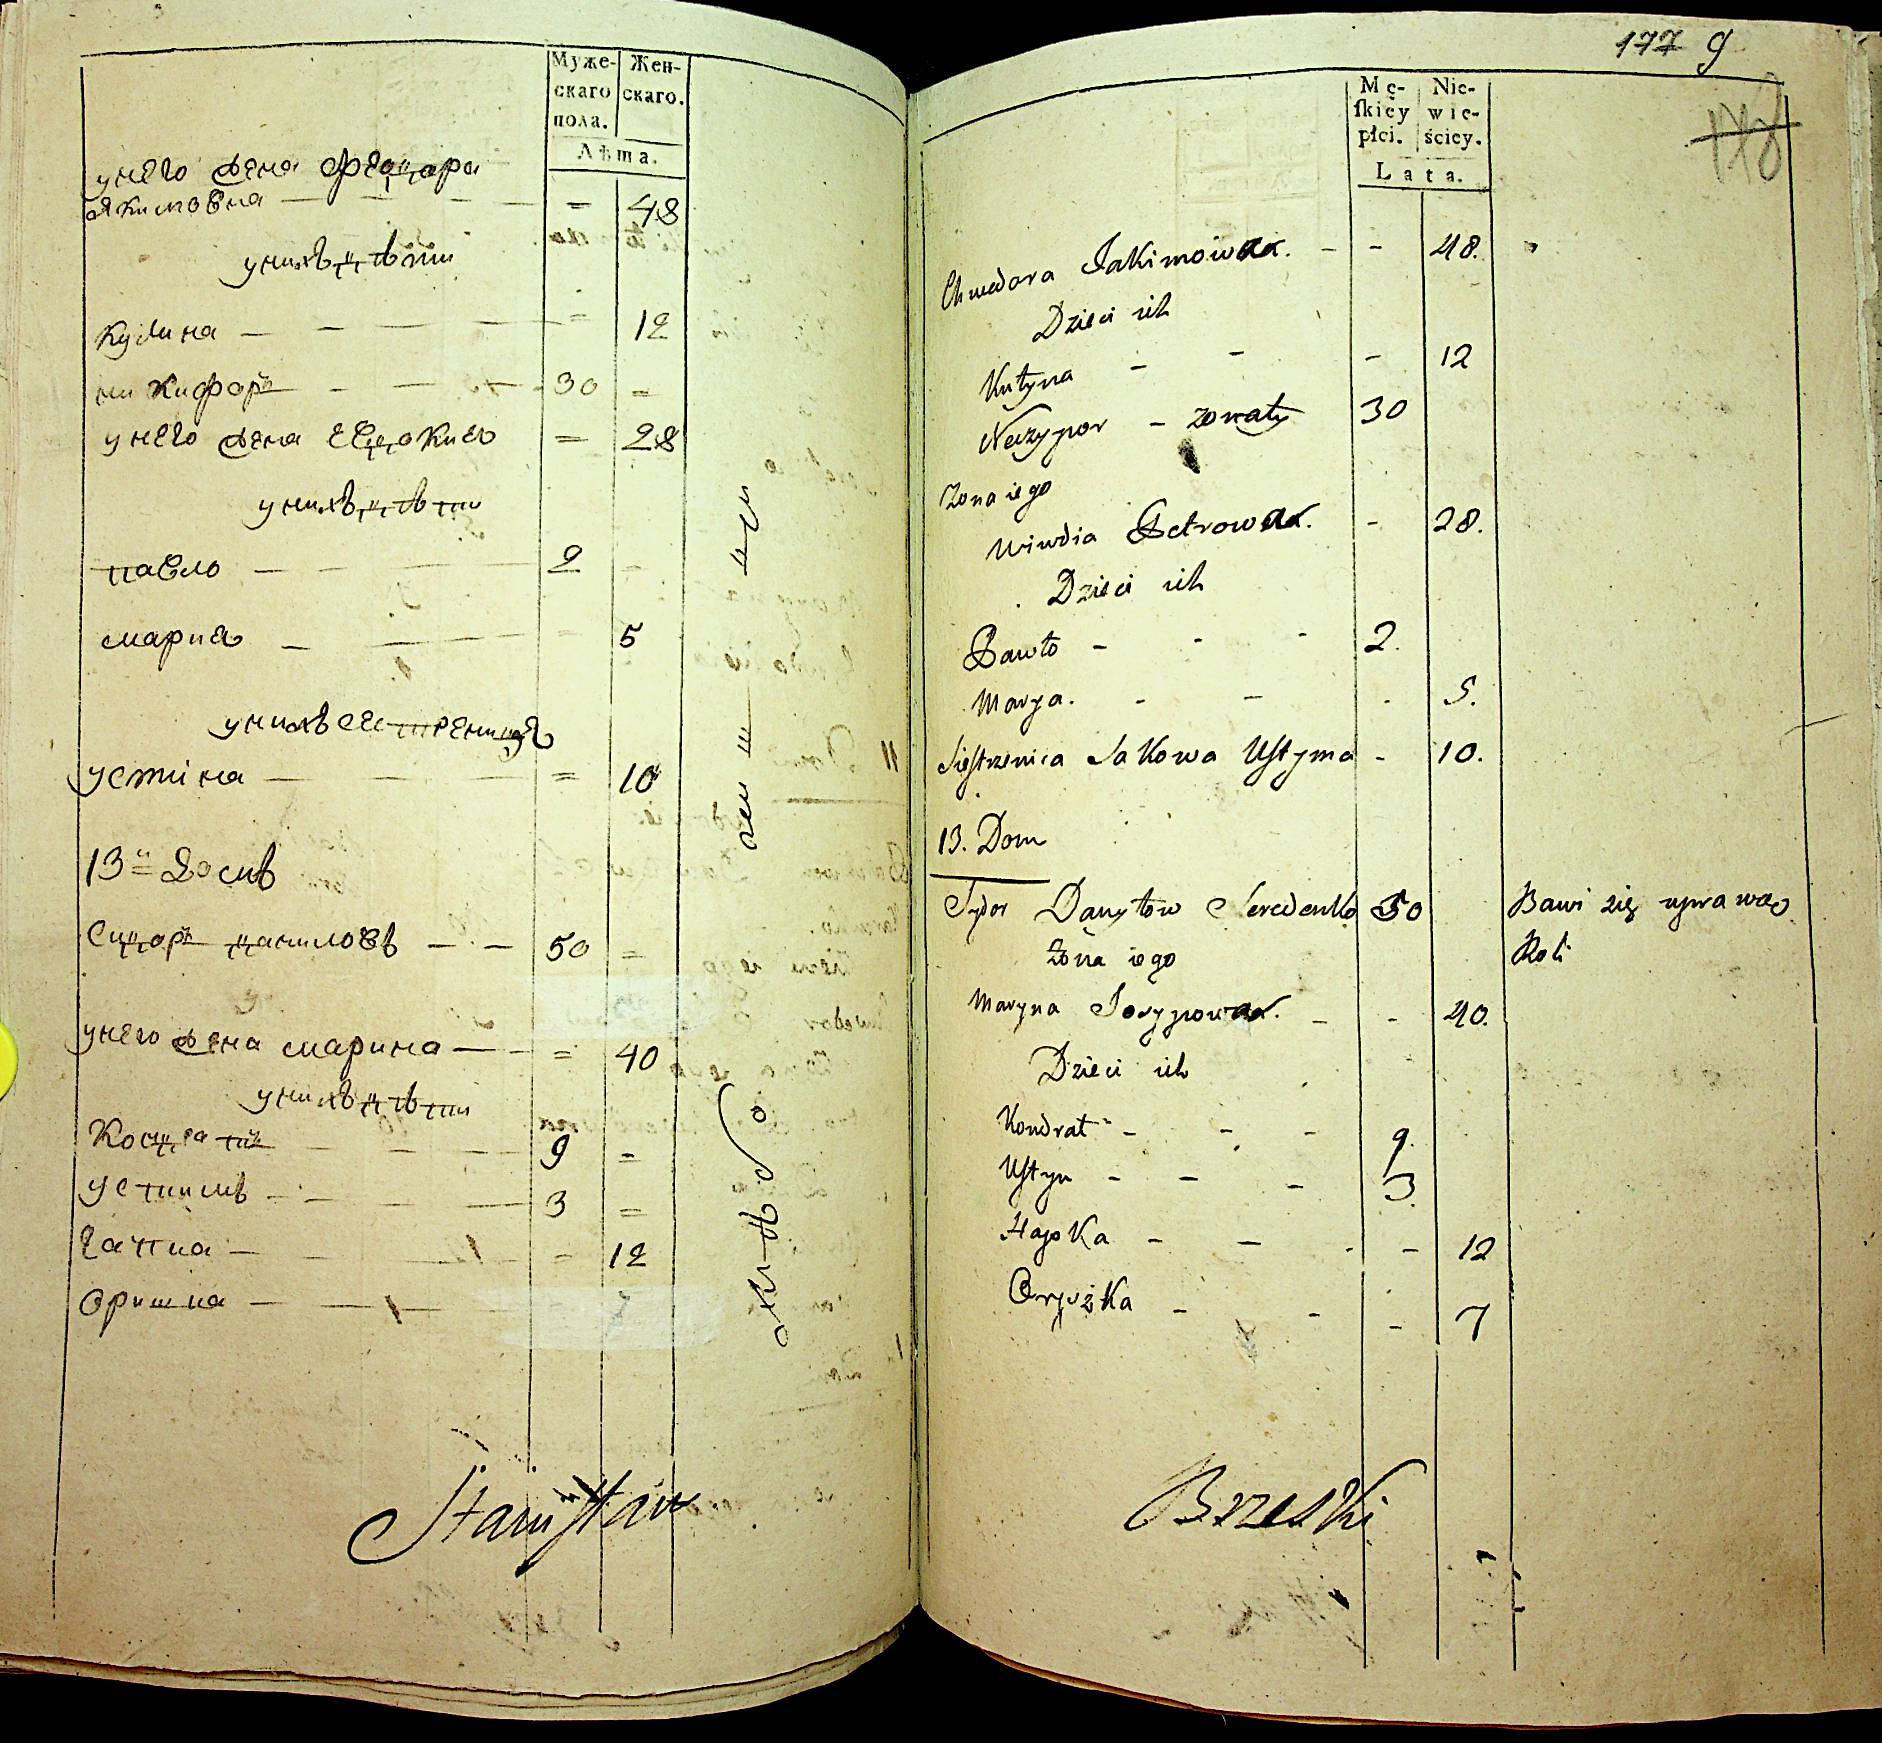 Муже-
скаго
пола.
Жен-
скаго.
Лѣта.
унего жена Феодора
Якимовна — — = 48
унихъ дѣти
Кулина — — = 12
Никифоръ — — 30 =
унего жена Евдокия = 28
унихъ дѣти
Павло — — 2 -
Мария — — 5
унихъ сестреница
Устина — — = 10
13й Домъ
Сидоръ Даниловъ — — 50 =
унего жена Марина — — = 40
унихъ дѣти
Кондратий — — 9 =
Устимъ — — 3 =
Гапка — — = 12
Оришка — — 7
Stanisław
177 9
178
Mę-
skiey
płci.
Nie-
wie-
ściey.
Lata.
Chwedora Jakimowna. - - 48.
Dzieci ich
Kulyna - - - 12
Neczypor - zonaty 30
Zona iego
Wiwdia Petrowna. - 28.
Dzieci ich
Pawło - - - 2.
Marya. - - - 5.
Siestrzenica Jakowa Ustyma - 10.
13. Dom
Sydor Danyłow Seredenko 50 Bawi się uprawą
Roli
Żona iego
Maryna Josypowna. - - 40.
Dzieci ich
Kondrat - - - 9.
Ustyn - - - 3.
Hapka - - - - 12
Oryszka - - - 7
Brzeski